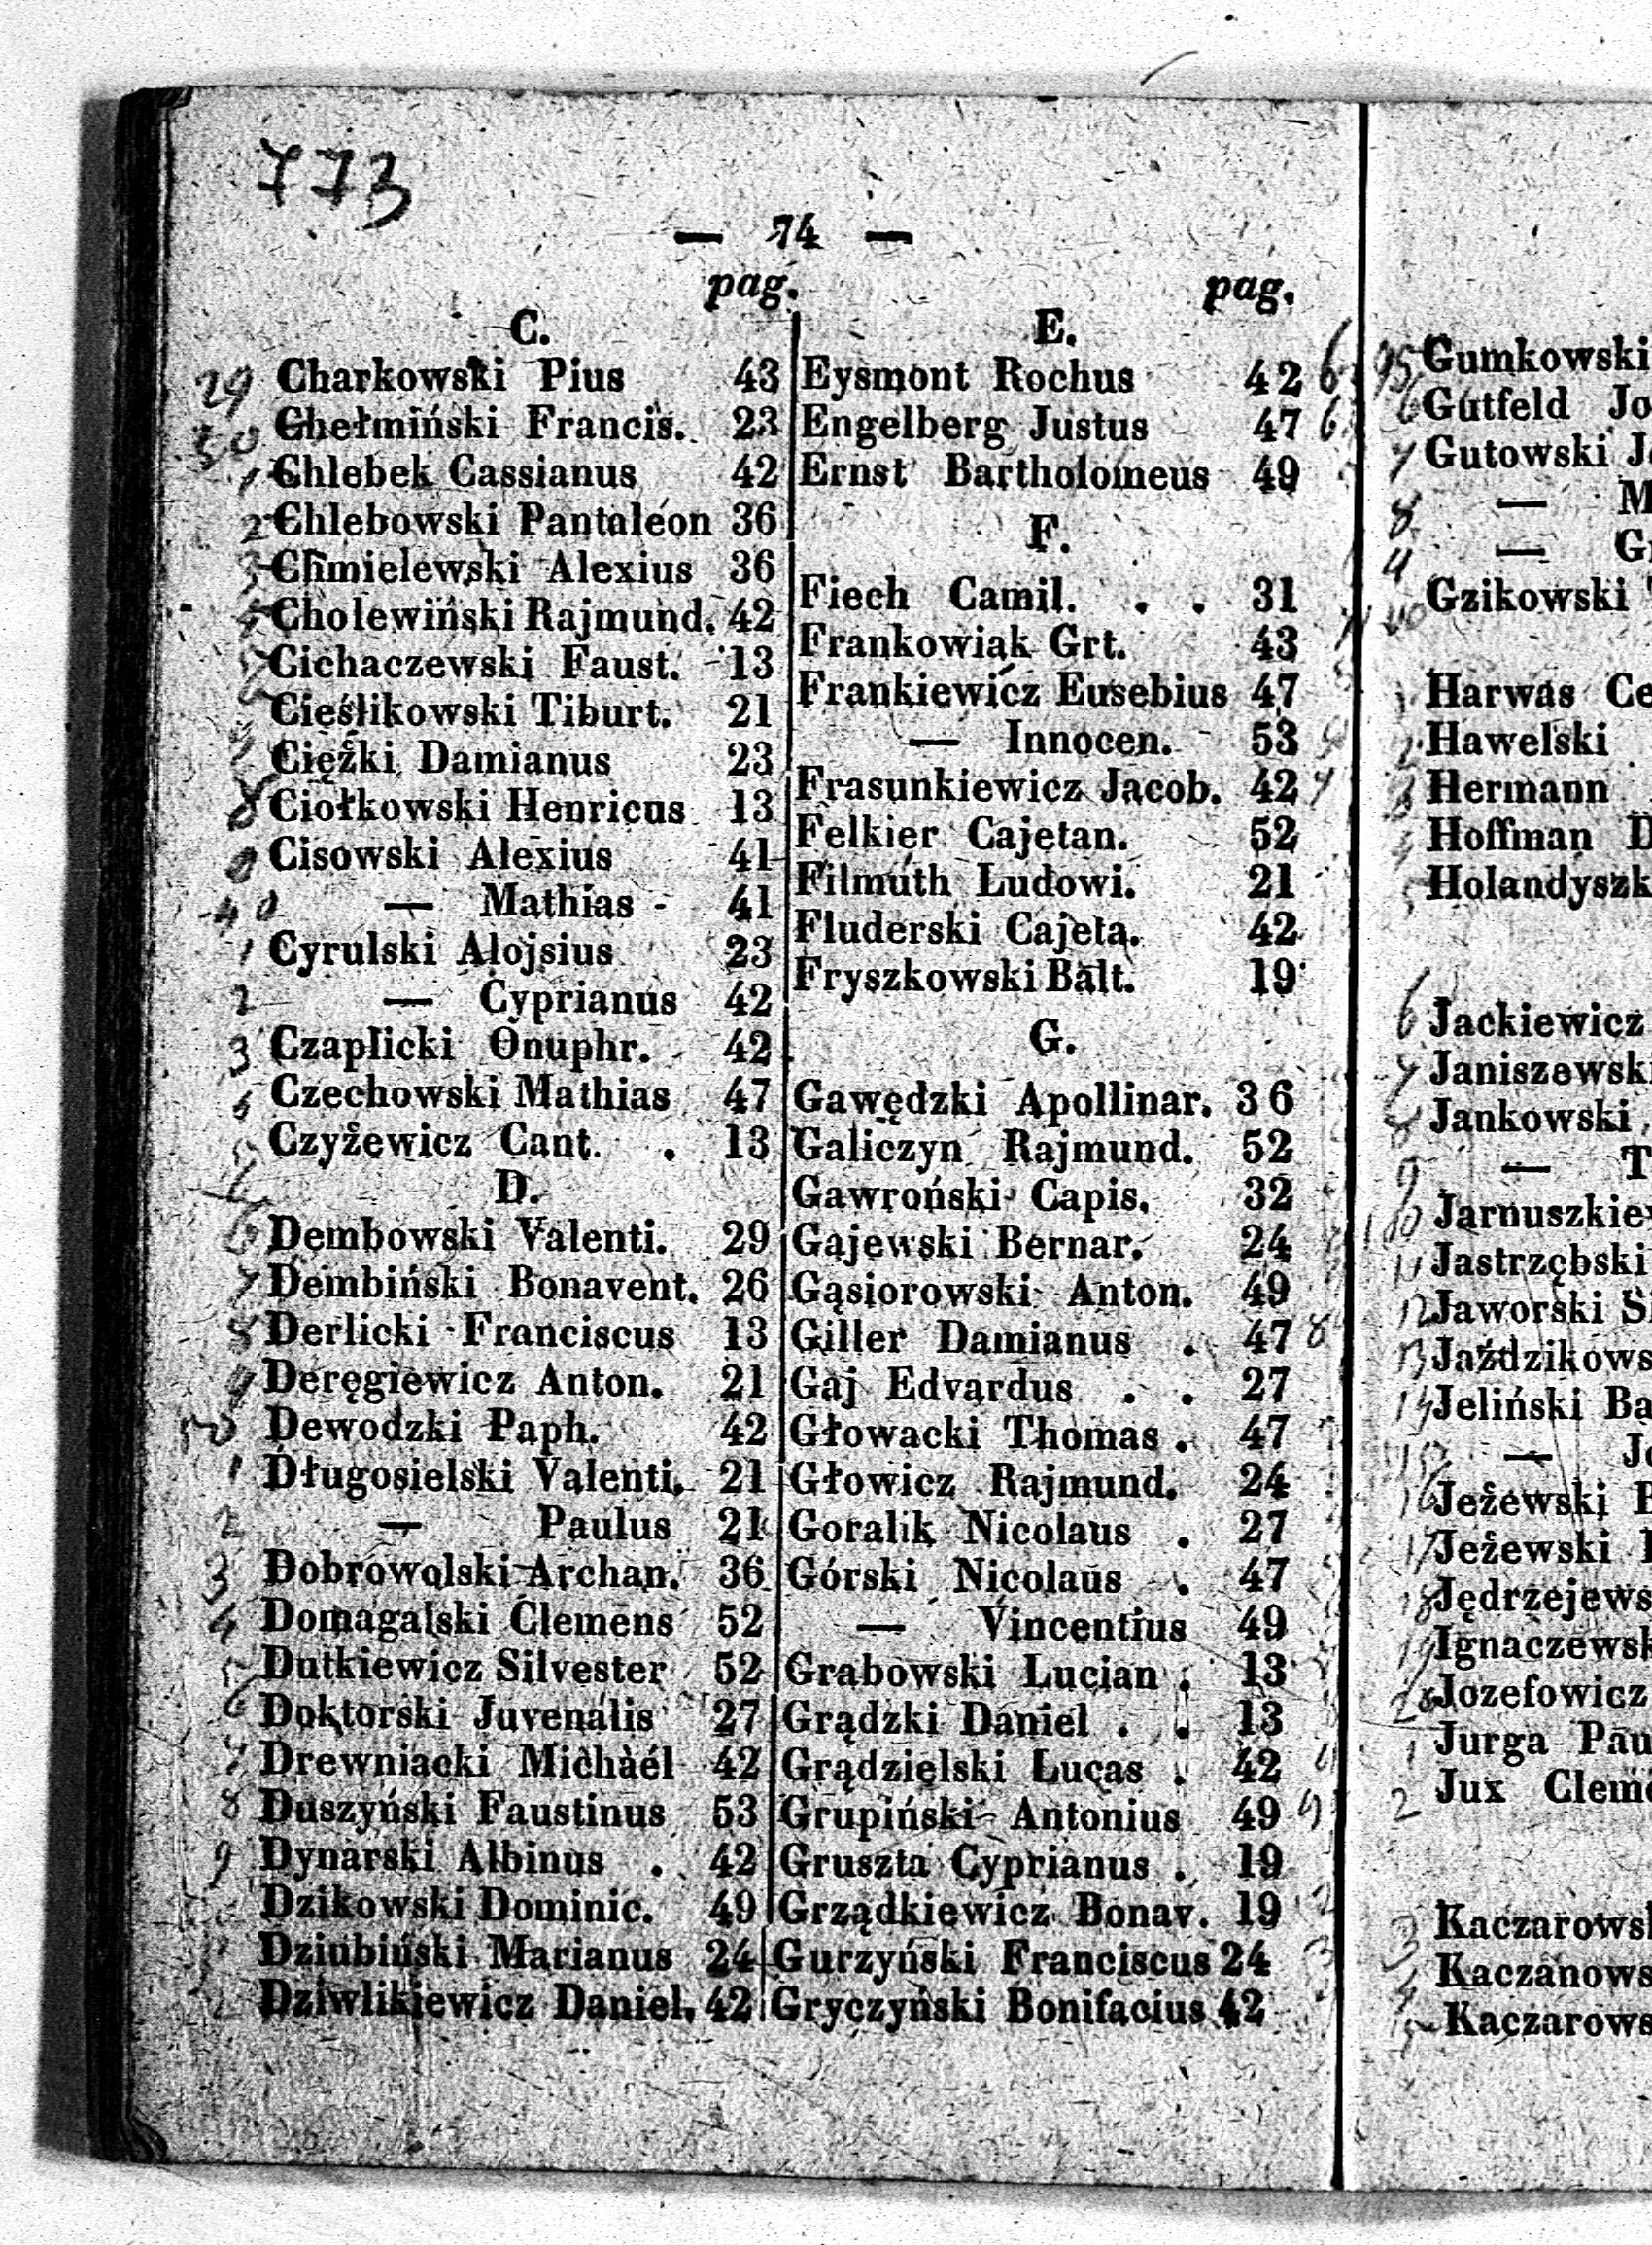 773
— 74 —
pag.
C.
Charkowski Pius 43
Chełmiński Francis. 23
Chlebek Cassianus 42
Chlebowski Pantaleon 36
Chmielewski Alexius 36
Cholewiński Rajmund. 42
Cichaczewski Faust. 13
Cieślikowski Tiburt. 21
Ciężki Damianus 23
Ciołkowski Henricus 13
Cisowski Alexius 41
— Mathias 41
Cyrulski Alojsius 23
— Cyprianus 42
Czaplicki Onuphr. 42
Czechowski Mathias 47
Czyżewicz Cant. . 13
D.
Dembowski Valenti. 29
Dembiński Bonavent. 26
Derlicki Franciscus 13
Deręgiewicz Anton. 21
Dewodzki Paph. 42
Długosielski Valenti. 21
— Paulus 21
Dobrowolski Archan. 36
Domagalski Clemens 52
Dutkiewicz Silvester 52
Doktorski Juvenalis 27
Drewniacki Michaél 42
Duszyński Faustinus 53
Dynarski Albinus . 42
Dzikowski Dominic. 49
Dziubiński Marianus 24
Dziwlikiewicz Daniel. 42
pag.
E.
Eysmont Rochus 42
Engelberg Justus 47
Ernst Bartholomeus 49
F.
Fiech Camil. . . 31
Frankowiak Grt. 43
Frankiewicz Eusebius 47
— Innocen. 53
Frasunkiewicz Jacob. 42
Felkier Cajetan. 52
Filmuth Ludowi. 21
Fluderski Cajeta. 42
Fryszkowski Balt. 19
G.
Gawędzki Apollinar. 36
Galiczyn Rajmund. 52
Gawroński Capis. 32
Gajewski Bernar. 24
Gąsiorowski Anton. 49
Giller Damianus . 47
Gaj Edvardus . . 27
Głowacki Thomas . 47
Głowicz Rajmund. 24
Goralik Nicolaus . 27
Górski Nicolaus . 47
— Vincentius 49
Grabowski Lucian . 13
Grądzki Daniel . . 13
Grądzielski Lucas . 42
Grupiński Antonius 49
Gruszta Cyprianus . 19
Grządkiewicz Bonav. 19
Gurzyński Franciscus 24
Gryczyński Bonifacius 42
Gumkowski
Gutfeld Jo
Gutowski
— M
— G
Gzikowski
Harwas Ce
Hawelski
Hermann
Hoffman
Holandyszk
Jackiewicz
Janiszewsk
Jankowski
— T
Jarnuszkie
Jastrzębski
Jaworski
Jaździkows
Jeliński Ba
—
Jeżewski
Jeżewski
Jędrzejews
Ignaczews
Jozefowicz
Jurga Pau
Jux Cleme
Kaczarows
Kaczanows
Kaczarows